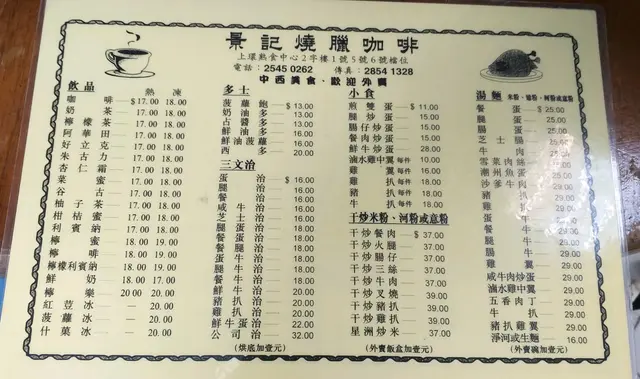 景記燒臘咖啡
上環熟食中心2字樓1號5號6號檔位
電話：2545 0262 傳真：2854 1328
中西美食·歡迎外賣
飲品 熱 凍
咖啡 $17.00 18.00
奶茶 17.00 18.00
檸檬茶 17.00 18.00
阿華田 17.00 18.00
好立克 17.00 18.00
朱古力 17.00 18.00
杏仁霜 17.00 18.00
菜蜜 17.00 18.00
谷古 17.00 18.00
柚子茶 17.00 18.00
柑桔蜜 17.00 18.00
利賓納 17.00 18.00
檸蜜 18.00 19.00
檸啡 18.00 19.00
檸檬利賓納 18.00 19.00
鮮奶 18.00 17.00
檸樂 20.00 20.00
紅荳冰 20.00
菠蘿冰 20.00
什菓冰 20.00
多士
菠蘿飽 $13.00
奶油多 13.00
占醬多 13.00
鮮油多 16.00
鮮油菠蘿 16.00
西多 20.00
三文治
蛋治 $16.00
腿治 16.00
餐治 16.00
咸牛治 16.00
芝士治 16.00
腿蛋治 18.00
餐蛋治 18.00
蛋牛治 18.00
腿牛治 18.00
餐牛治 18.00
鮮牛治 20.00
豬扒治 20.00
雞扒治 20.00
鮮牛蛋治 22.00
公司治 32.00
(烘底加壹元)
小食
煎雙蛋 $11.00
腿炒蛋 15.00
腸仔炒蛋 15.00
餐肉炒蛋 15.00
鮮牛炒蛋 28.00
滷水雞中翼 每件 10.00
雞翼 每件 16.00
雞扒 每件 18.00
豬扒 每件 18.00
牛扒 每件 18.00
干炒米粉、河粉或意粉
干炒餐肉 $37.00
干炒火腿 37.00
干炒腸仔 37.00
干炒三絲 37.00
干炒牛肉 37.00
干炒叉燒 39.00
干炒豬扒 39.00
干炒雞扒 39.00
星洲炒米 37.00
(外賣飯盒加壹元)
湯麵 米粉、通粉、河粉或意粉
餐蛋 $25.00
腿蛋 25.00
腸蛋 25.00
芝士腸 25.00
牛肉
雪菜肉絲
潮州魚蛋
沙爹牛肉
豬扒
雞扒
餐牛 29.00
腿牛 29.00
腸牛 29.00
雞翼 29.00
咸牛肉炒蛋 29.00
滷水雞中翼 29.00
五香肉丁 29.00
牛扒 29.00
豬扒雞翼 29.00
淨河或生麵 16.00
(外賣碗加壹元)